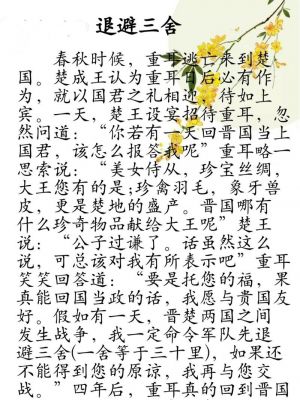 退避三舍
春秋时候，重耳逃亡来到楚
国。楚成王认为重耳日后必有作
为，就以国君之礼相迎，待如上
宾。一天，楚王设宴招待重耳，忽
然问道：“你若有一天回晋国当上
国君，该怎么报答我呢”重耳略一
思索说：“美女侍从，珍宝丝绸，
大王您有的是;珍禽羽毛，象牙兽
皮，更是楚地的盛产。晋国哪有
什么珍奇物品献给大王呢”楚王
说：“公子过谦了。话虽然这么
说，可总该对我有所表示吧”重耳
笑笑回答道：“要是托您的福，果
真能回国当政的话，我愿与贵国友
好。假如有一天，晋楚两国之间
发生战争，我一定命令军队先退
避三舍(一舍等于三十里)，如果还
不能得到您的原谅，我再与您交
战。”四年后，重耳真的回到晋国